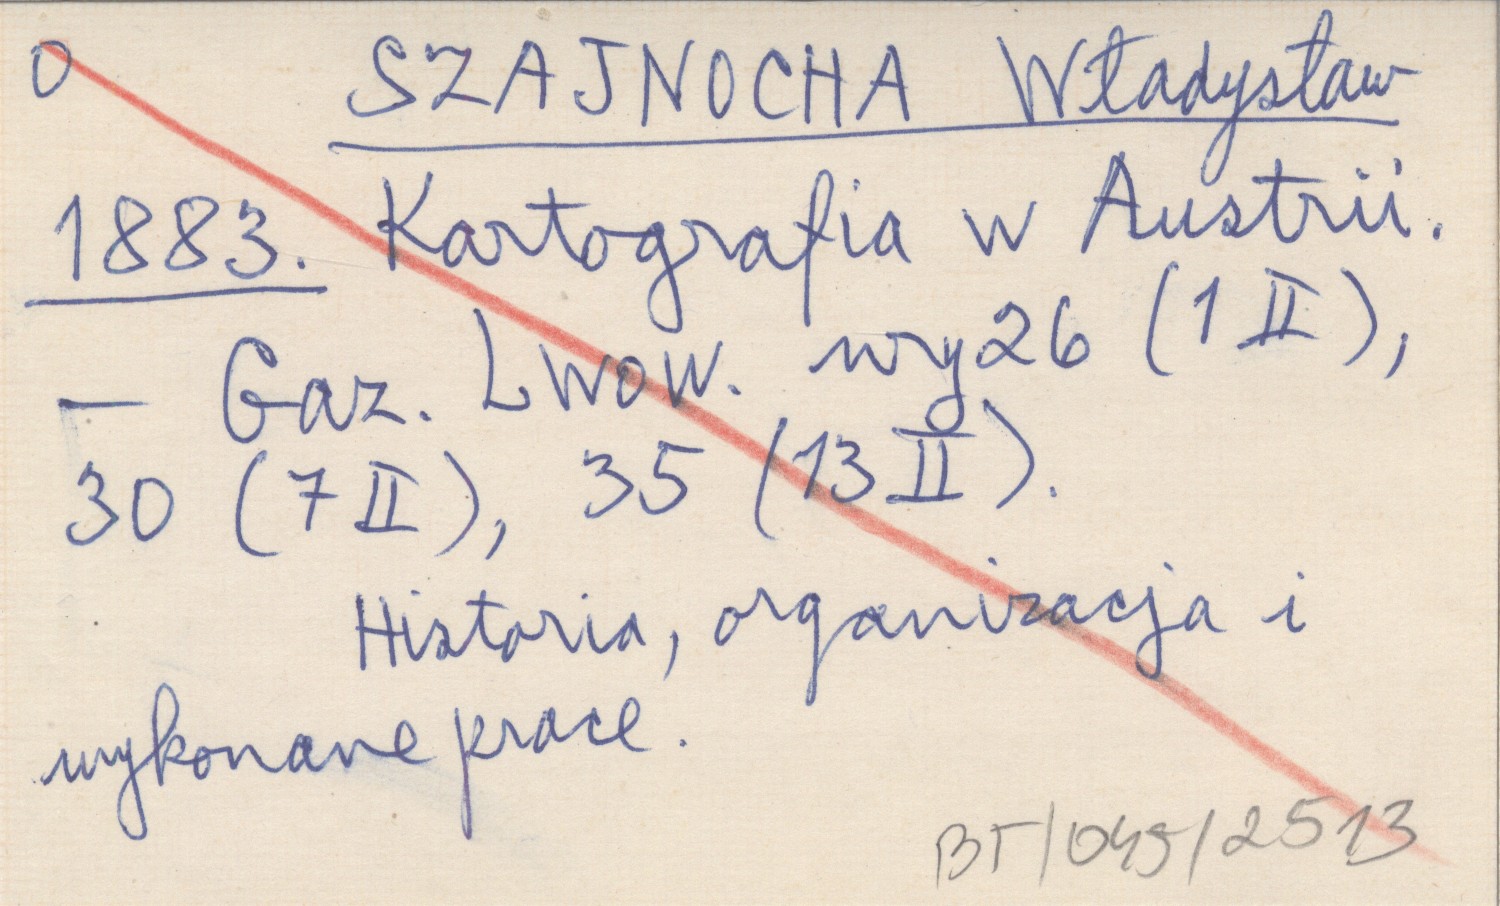 0 SZAJNOCHA Władysław
1883. Kartografia w Austrii.
— Gaz. Lwow. nry 26 (1 II),
30 (7 II), 35 (13 II).
Historia, organizacja i
wykonane prace.
BT/045/2513